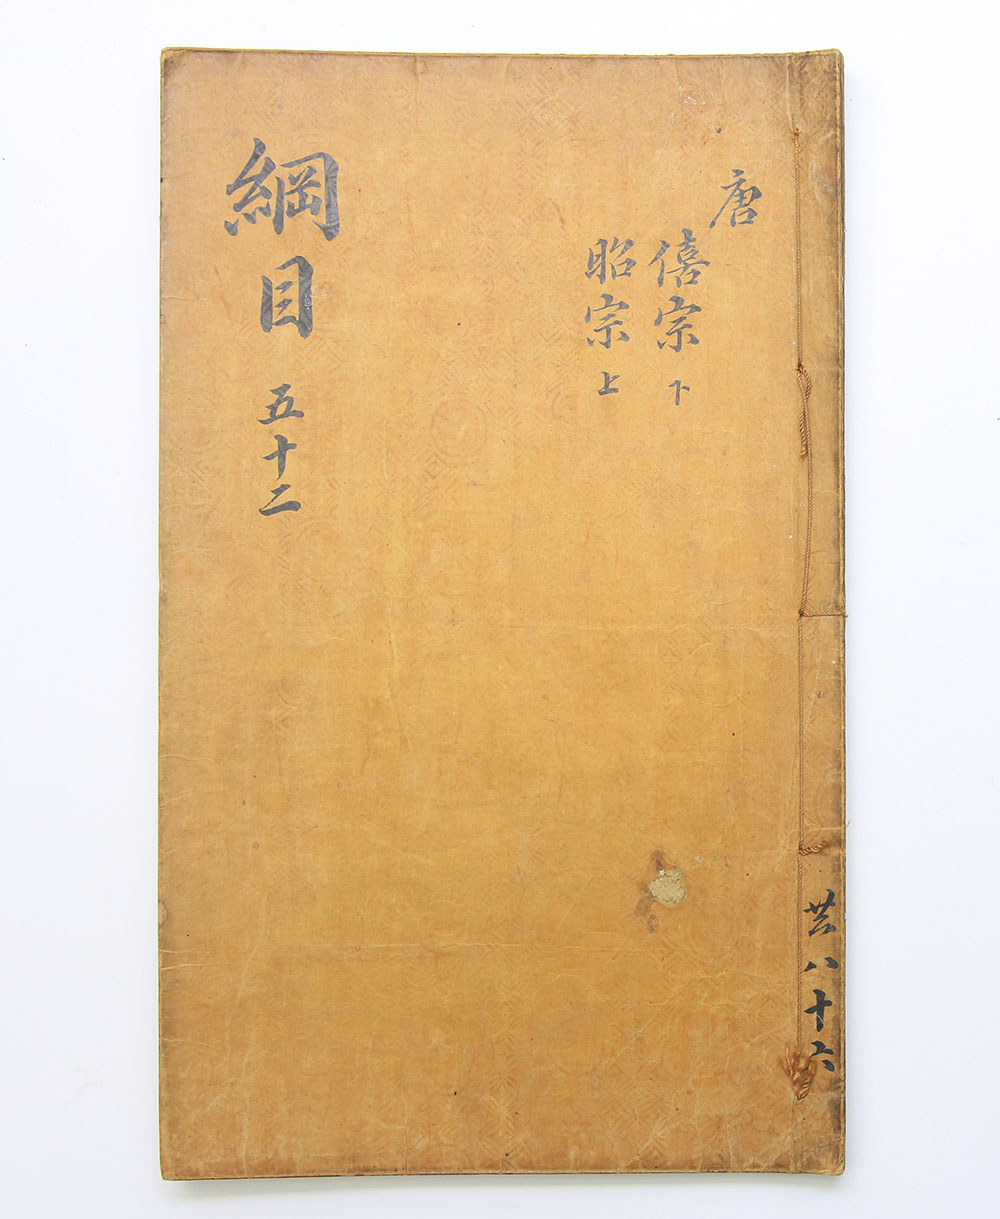 綱目 五十二
唐
僖宗 下
昭宗 上
共八十六